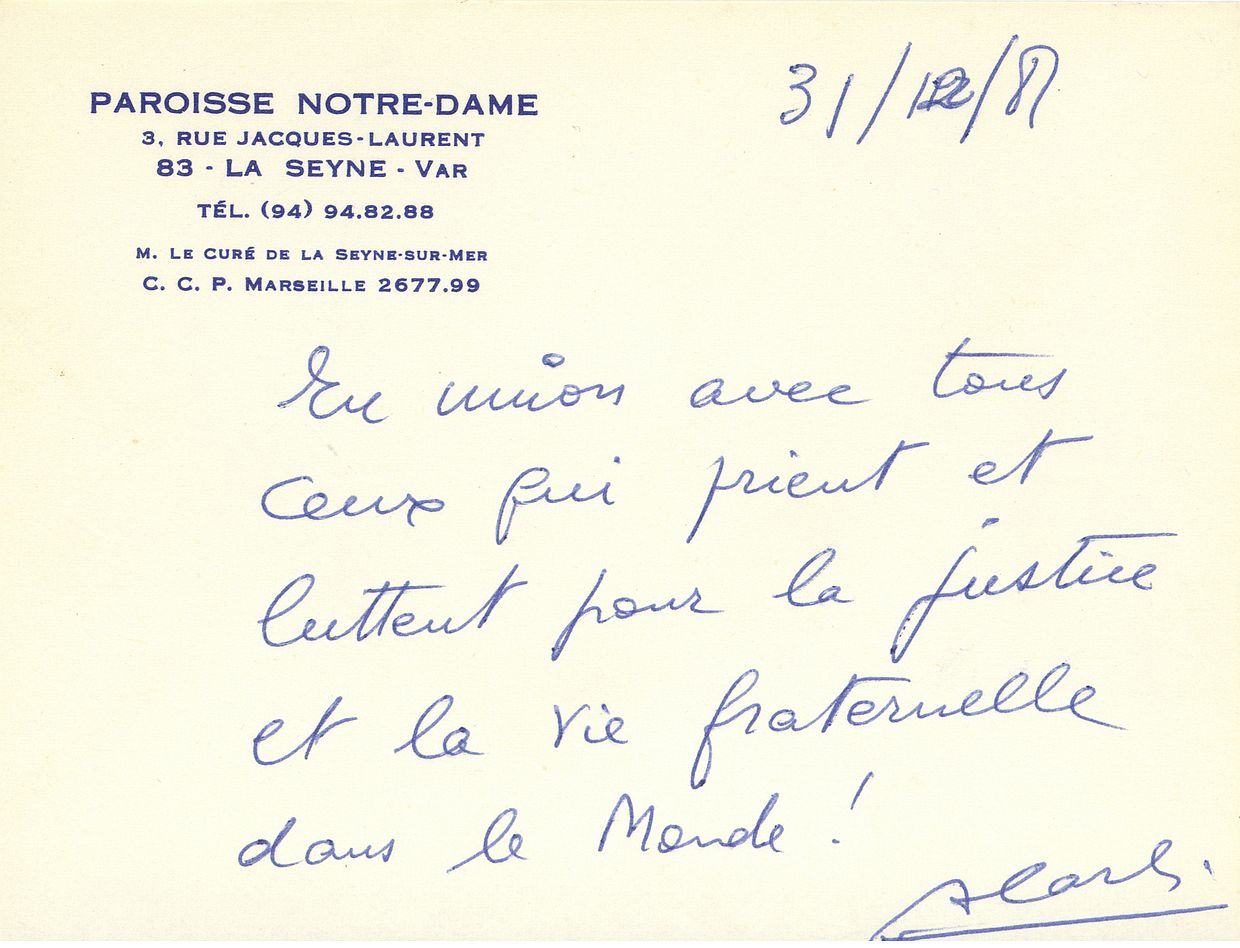 PAROISSE NOTRE-DAME
3, RUE JACQUES-LAURENT
83 - LA SEYNE - VAR
TÉL. (94) 94.82.88
M. LE CURÉ DE LA SEYNE-SUR-MER
C. C. P. MARSEILLE 2677.99
31/12/
En union avec tous
ceux qui prient et
luttent pour la justice
et la vie fraternelle
dans le Monde !